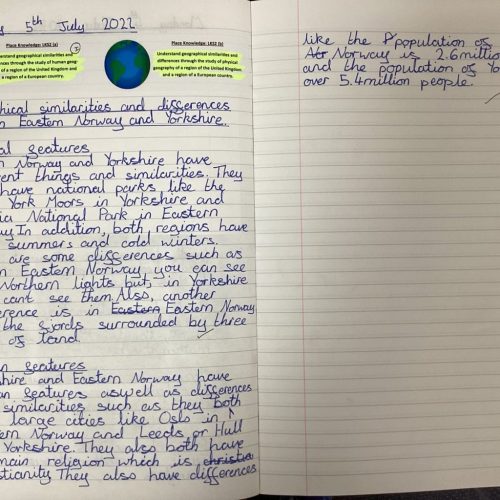 5th July 2022
Place Knowledge: LKS2 (a)
Understand geographical similarities and
differences through the study of human geog-
of a region of the United Kingdom and
of a European country.
Place Knowledge: LKS2 (b)
Understand geographical similarities and
differences through the study of physical
geography of a region of the United Kingdom,
and a region of a European country.
hical similarities and differences
Eastern Norway and Yorkshire.
al features
Norway and Yorkshire have
ent things and similarities. They
have national parks like the
York Moors in Yorkshire and
ia National Park in Eastern
ay. In addition, both regions have
summers and cold winters.
are some differences such as
n Eastern Norway you can see
Northern lights but in Yorkshire
cant see them. Also, another
erence is in Eastern Eastern Norway
the fjords surrounded by three
of land
n features
shire and Eastern Norway have
an features aswell as differences
similarities such as they both
large cities like Oslo in
ern Norway and Leeds or Hull
Yorkshire. They also both have
main religion which is christia
istianity They also have differences
like the population of
Norway is 2.6 millio
and the population of Yo
over 5.4 million people.